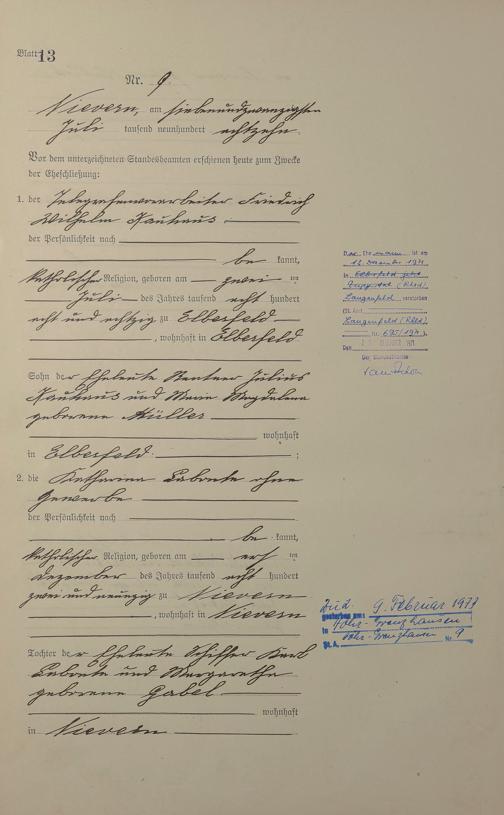 Blatt 13
Nr. 9
Nievern, am siebenundzwanzigsten
Juli tausend neunhundert achtzehn.
Vor dem unterzeichneten Standesbeamten erschienen heute zum Zwecke
der Eheschließung:
1. der Telegrafenvorarbeiter Friedrich
Wilhelm Kauhaus
der Persönlichkeit nach
be kannt,
katholischer Religion, geboren am zwei ten
Juli des Jahres tausend acht hundert
acht und achtzig zu Elberfeld
, wohnhaft in Elberfeld
Sohn der Eheleute Rentner Julius
Kauhaus und Maria Magdalena
geborene Müller
wohnhaft
in Elberfeld ;
2. die Katharina Labonte ohne
Gewerbe
der Persönlichkeit nach
be kannt,
katholischer Religion, geboren am elf ten
Dezember des Jahres tausend acht hundert
zwei und neunzig zu Nievern
, wohnhaft in Nievern
Tochter der Eheleute Schiffer Karl
Labonte und Margarethe
geborene Gabel
wohnhaft
in Nievern
Der Ehemann ist am
12. Dezember 1971
in
(Rhld)
Langenfeld verstorben
(St. Amt
Langenfeld (Rhld)
Nr. 695/1971).
Den
Der Standesbeamte
gestorben am: 9. Februar 1977
in Höhr-Grenzhausen
St. A. Höhr-Grenzhausen Nr. 9